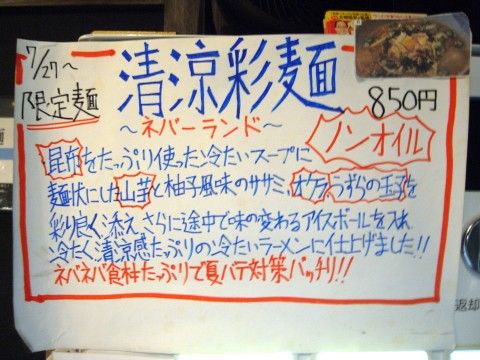 7/27〜
限定麺
清涼彩麺
850円
〜ネバーランド〜
ノンオイル
昆布をたっぷり使った冷たいスープに
麺状にした山芋と柚子風味のササミ、オクラ、うずらの玉子を
彩り良く添え、さらに途中で味の変わるアイスボールを入れ、
冷たく清涼感たっぷりの冷たいラーメンに仕上げました!!
ネバネバ食材たっぷりで夏バテ対策バッチリ!!
返却